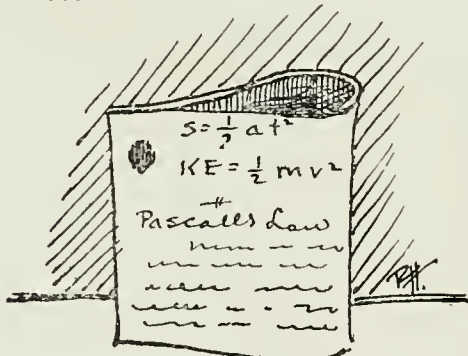 S = 1/2 at²
KE = 1/2 mv²
Pascall's Law
R.H.